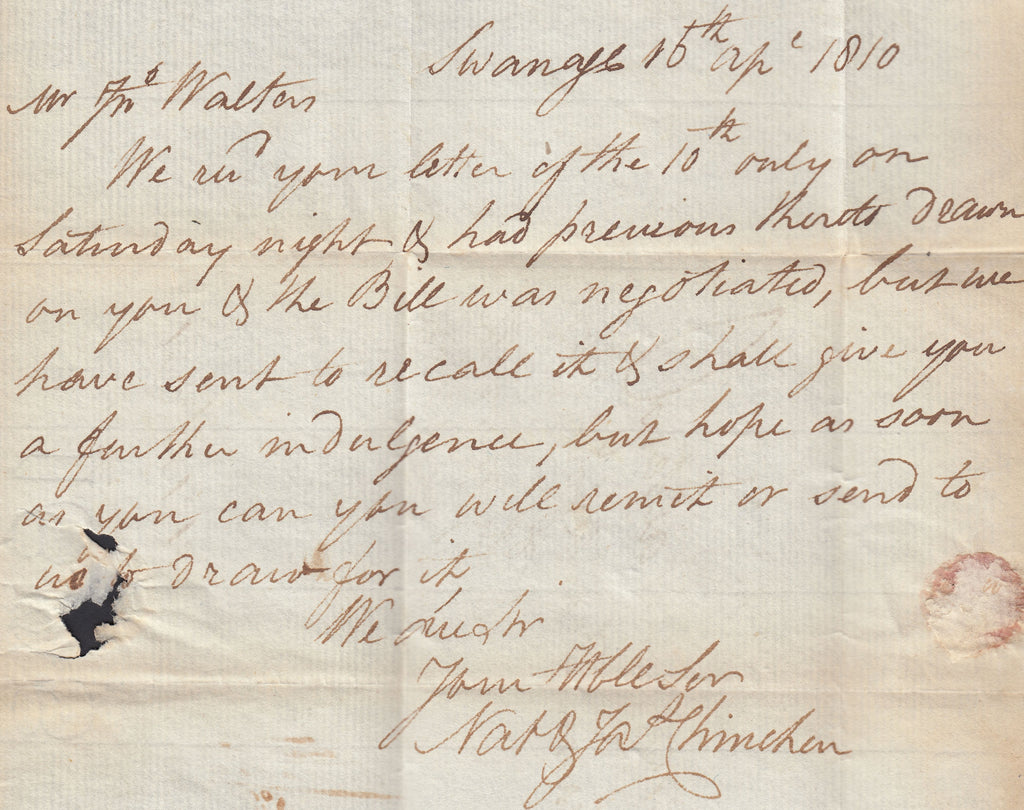 Swanage 16th Apl 1810
Mr Jno Walters
We recd your letter of the 10th only on
Saturday night & had previous thereto drawn
on you & the Bill was negotiated, but we
have sent to recall it & shall give you
a further indulgence, but hope as soon
as you can you will remit or send to
us to draw for it
We are Sir
Your Hble Ser
Nat & Chinchen